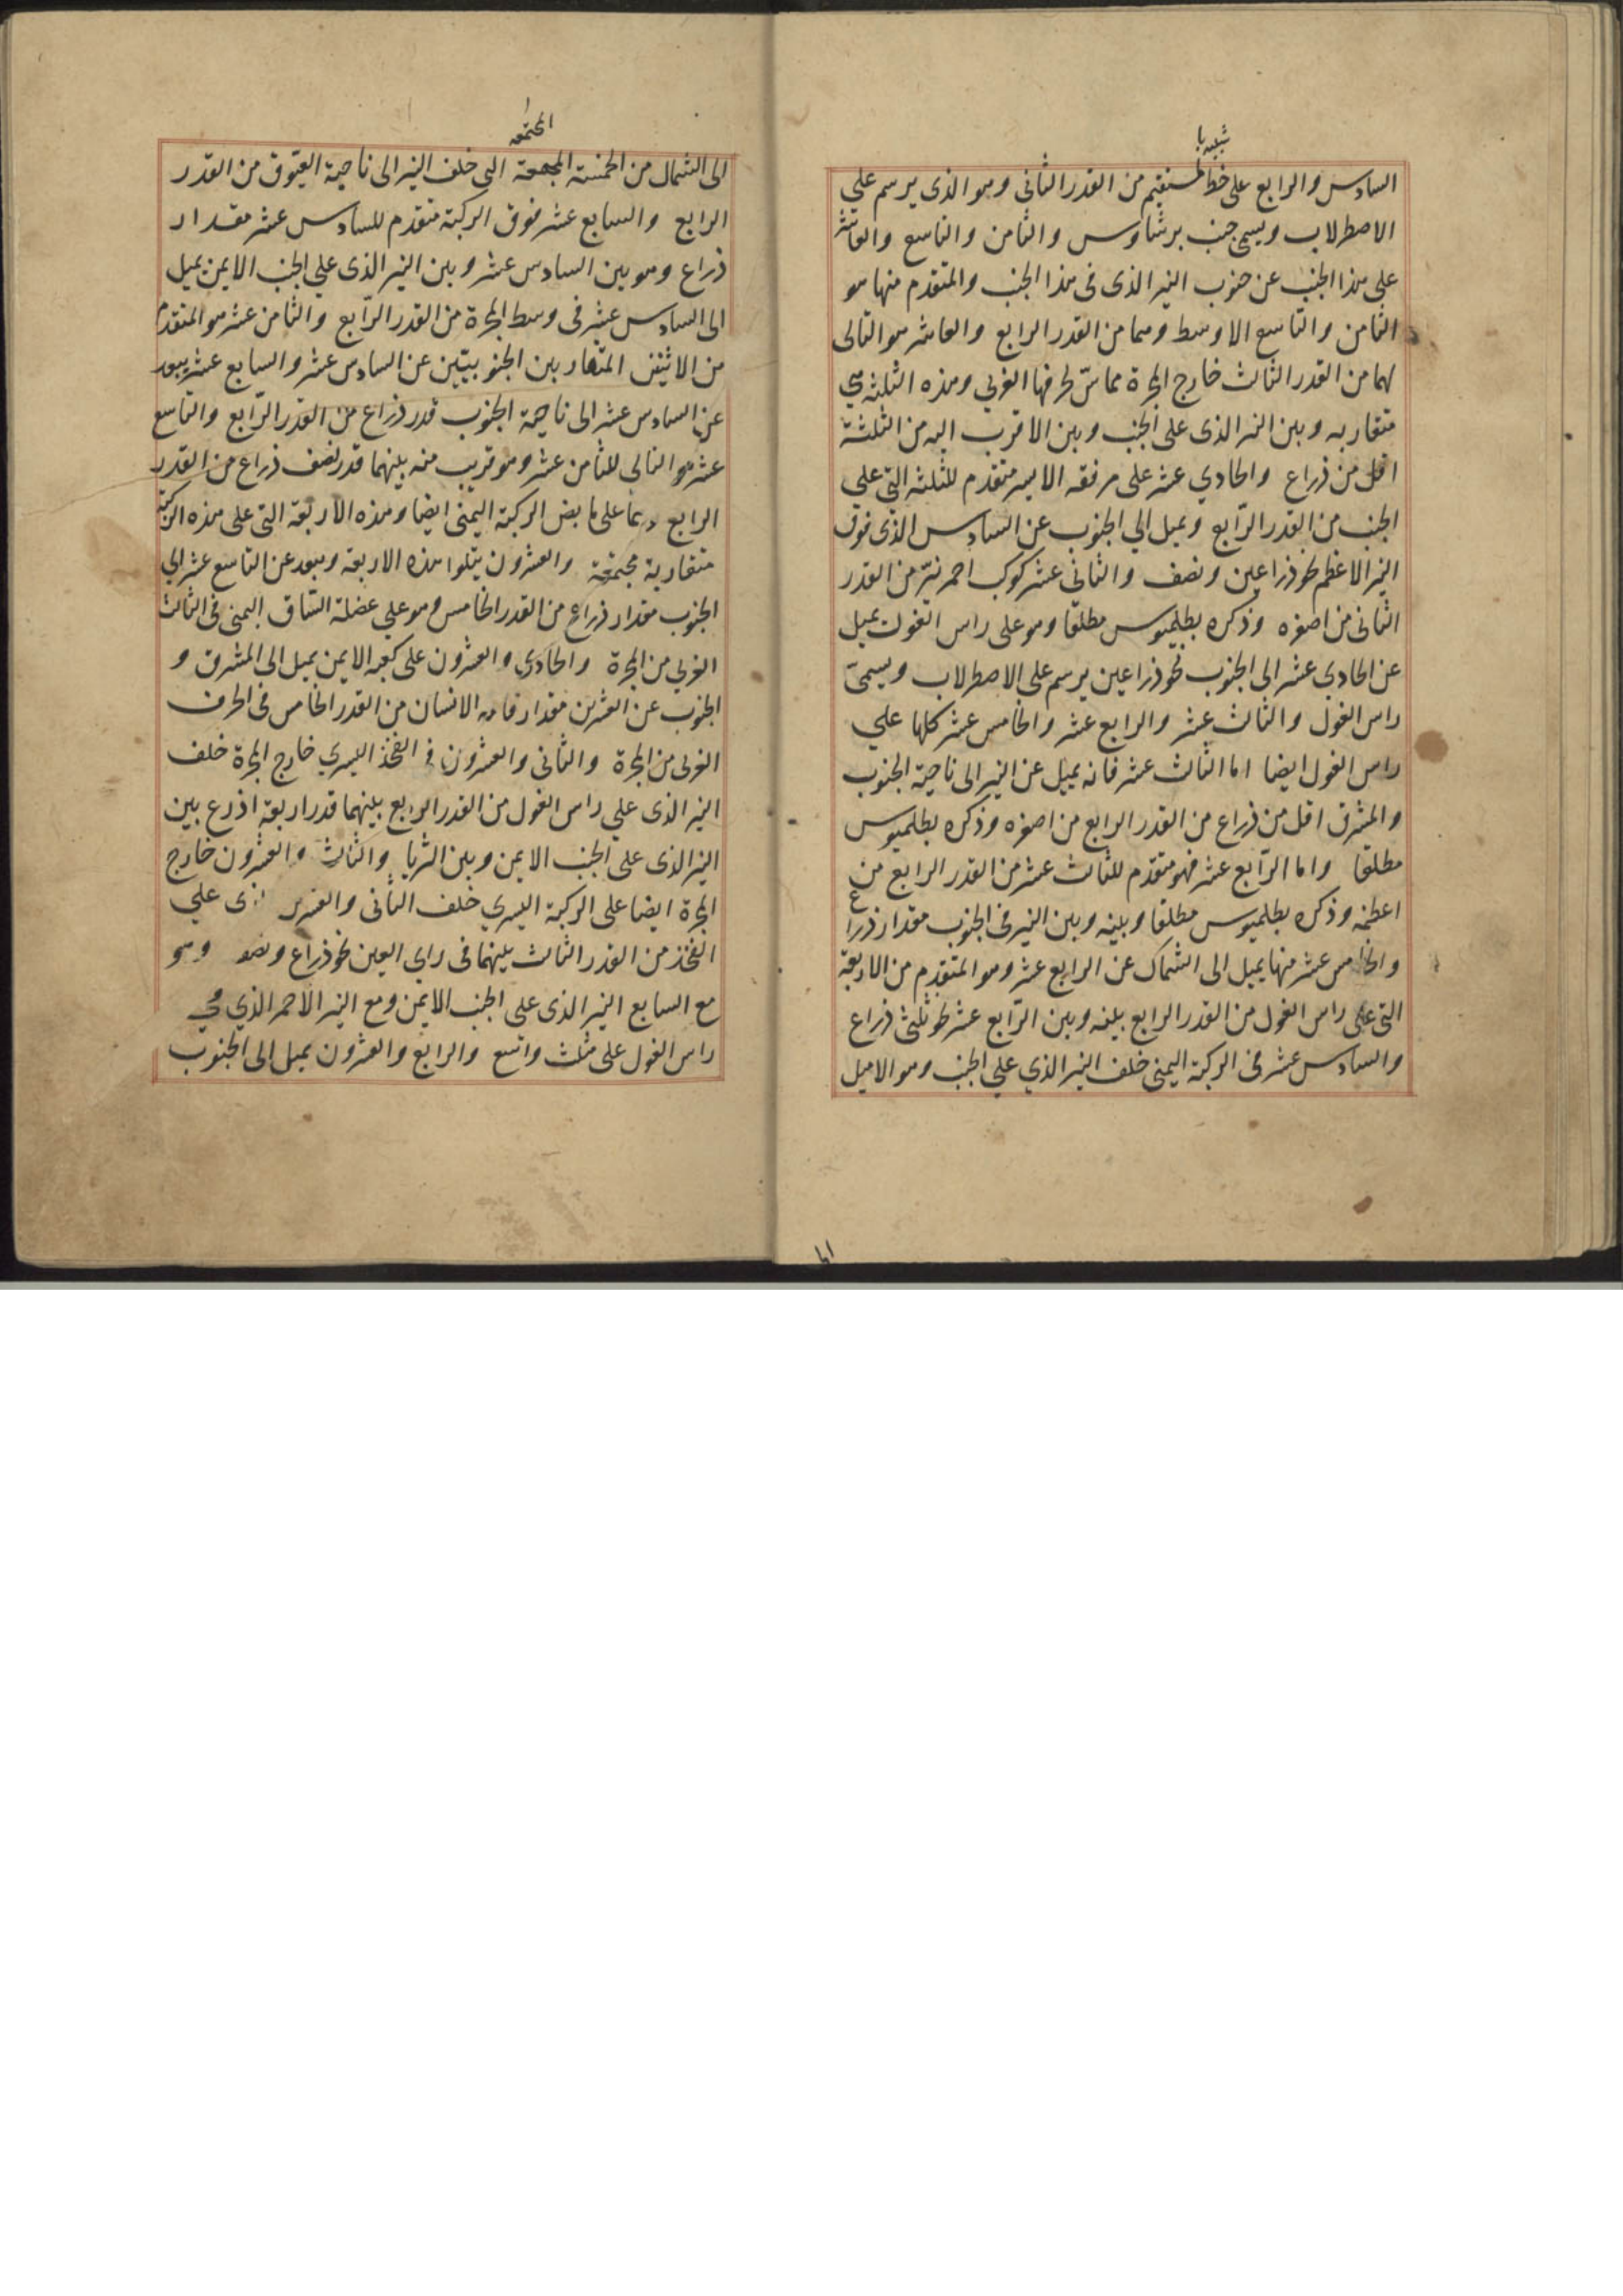 شبيه با
السادس والرابع على خط مستقيم من القدر الثانى وهو الذى يرسم على
الاصطرلاب ويسمى جنب برشاوس والثامن والتاسع والعاشر
على هذا الجنب عن جنوب النير الذى فى هذا الجنب والمتقدم منها هو
الثامن والتاسع الاوسط وهما من القدر الرابع والعاشر هو التالى
لهما من القدر الثالث خارج المجرة مماسّ لحرفها الغربى وهذه الثلثه هى
متقاربه وبين النير الذى على الجنب وبين الاقرب اليه من الثلثة
اقل من ذراع والحادي عشر على مرفقه الايسر متقدم للثلثه التي علي
الجنب من القدر الرّابع ويميل الي الجنوب عن السادس الذى فوق
النير الاعظم نحو ذراعين ونصف والثانى عشر كوكب احمر نيّر من القدر
الثانى من اصغره وذكره بطلميوس مطلقا وهو على راس الغول يميل
عن الحادي عشر الى الجنوب نحو ذراعين يرسم على الاصطرلاب ويسمىّ
راس الغول والثالث عشر والرابع عشر والخامس عشر كلها علي
راس الغول ايضا اما الثالث عشر فانه يميل عن النير الى ناحية الجنوب
والمشرق اقل من ذراع من القدر الرابع من اصغره وذكره بطلميوس
مطلقا واما الرّابع عشر فهو متقدم للثالث عشر من القدر الرابع من
اعظمه وذكره بطلميوس مطلقا وبينه وبين النير فى الجنوب مقدار ذراع
والخامس عشر منها يميل الى الشمال عن الرابع عشر وهو المتقدم من الاربعة
التى على راس الغول من القدر الرابع بينه وبين الرّابع عشر نحو ثلثى ذراع
والسادس عشر فى الركبة اليمنى خلف النير الذي علي الجنب وهو الاميل
المجتمعه
الى الشمال من الخمسة المجتمعة التى خلف النير الى ناحية العيّوق من القدر
الرابع والسابع عشر فوق الركبة متقدم للسادس عشر مقدار
ذراع وهو بين السادس عشر وبين النير الذى علي الجنب الايمن يميل
الى السادس عشر فى وسط المجرة من القدر الرّابع والثامن عشر هو المتقدم
من الاثنين المتقاربين الجنوبيّين عن السادس عشر والسابع عشر يبعد
عن السادس عشر الى ناحية الجنوب قدر ذراع من القدر الرّابع والتاسع
عشر هو التالى للثامن عشر وهو قريب منه بينهما قدر نصف ذراع من القدر
الرابع وهما على مابض الركبة اليمنى ايضا وهذه الاربعة التى على هذه الركبة
متقاربة مجتمعة والعشرون يتلوا هذه الاربعه ويبعد عن التاسع عشر الي
الجنوب مقدار ذراع من القدر الخامس وهو علي عضلة السّاق اليمنى فى الثالث
الغربى من المجرة والحادي والعشرون على كعبه الايمن يميل الى المشرق و
الجنوب عن العشرين مقدار قامة الانسان من القدر الخامس فى الحرف
الغربى من المجرة والثانى والعشرون فى الفخذ اليسري خارج المجرة خلف
النير الذى علي راس الغول من القدر الرابع بينهما قدر اربعة اذرع بين
النير الذى على الجنب الايمن وبين الثريا والثالث والعشرون خارج
المجرة ايضا على الركبة اليسري خلف الثانى والعشرين الذى علي
الفخذ من القدر الثالث بينهما فى راى العين نحو ذراع ونصف وهو
مع السابع النير الذى على الجنب الايمن ومع النير الاحمر الذي هي
راس الغول على مثلث واسع والرابع والعشرون يميل الى الجنوب